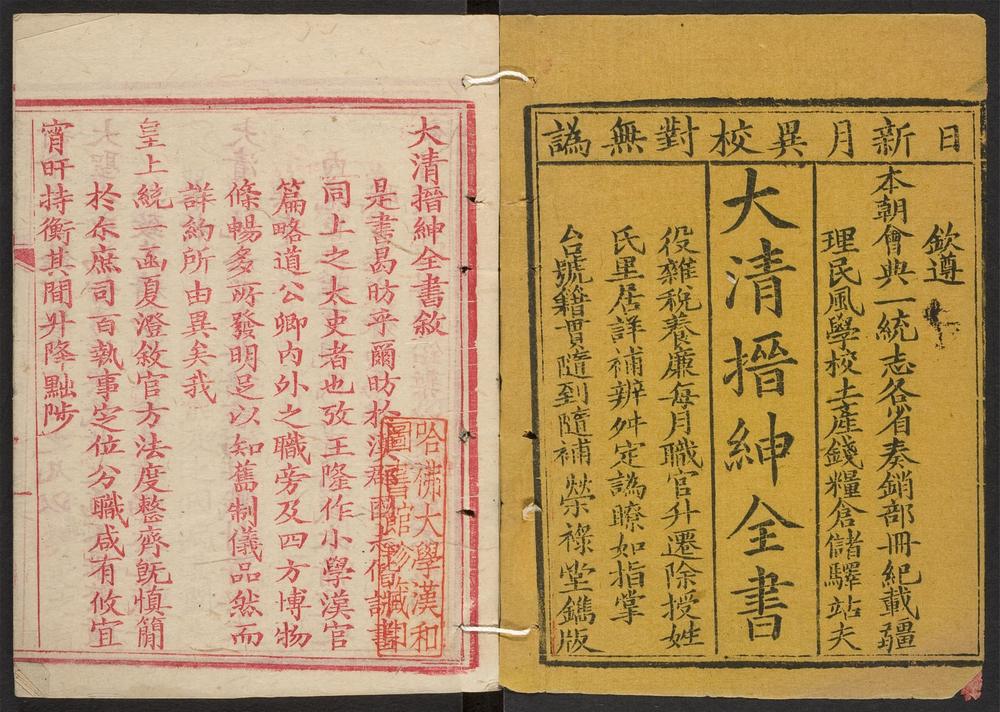 日新月異校對無譌
欽遵
本朝會典一統志各省奏銷部冊紀載疆
理民風學校土產錢糧倉儲驛站夫
大清搢紳全書
役雜稅養廉每月職官升遷除授姓
氏里居詳補辨舛定譌瞭如指掌
台號籍貫隨到隨補 榮祿堂鐫版
大清搢紳全書敘
是書曷昉乎爾昉於漢郡國志
同上之太史者也攷王隆作小學漢官
篇略道公卿內外之職旁及四方博物
條暢多所發明足以知舊制儀品然而
詳約所由異矣我
皇上統一函夏澄敘官方法度整齊既慎簡
於尔庶司百執事定位分職咸有攸宜
宵旰持衡其間升降黜陟
哈佛大學漢和
圖書館珍藏印